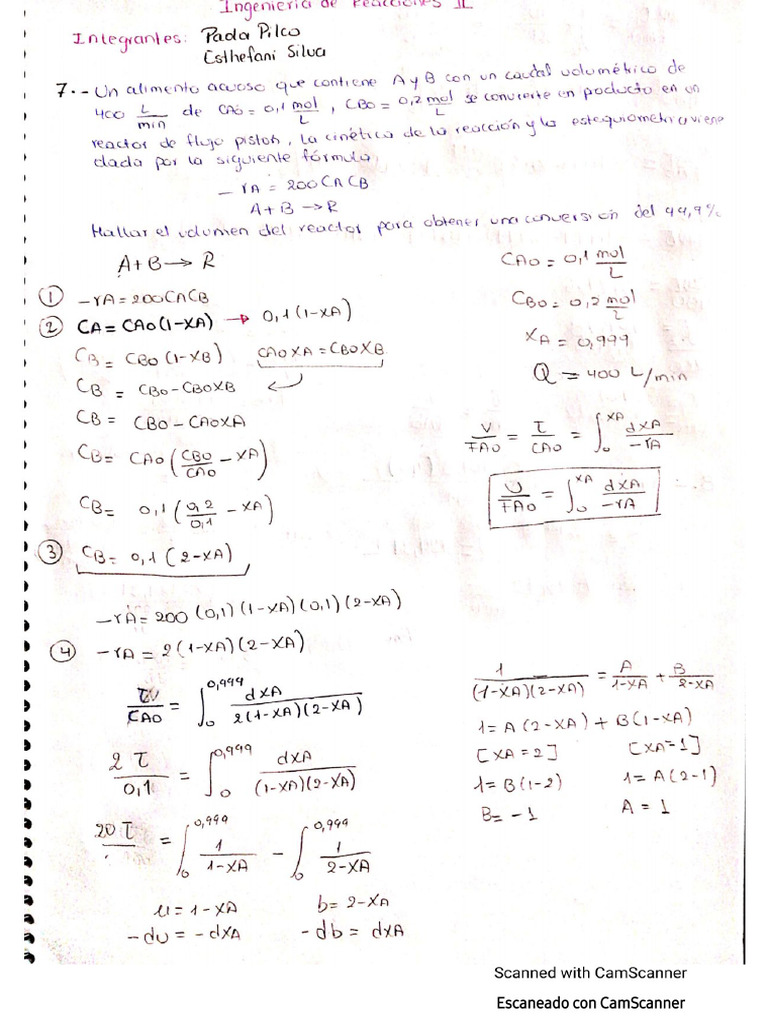 Ingeniería de Reacciones II
Integrantes: Paola Pilco
Esthefani Silva
7.- Un alimento acuoso que contiene A y B con un caudal volumétrico de
400 L/min de CAo = 0,1 mol/L , CBO = 0,2 mol/L se convierte en poducto en un
reactor de flujo piston, la cinética de la reacción y la estequiometria viene
dada por la siguiente fórmula,
-rA = 200CACB
A+B → R
Hallar el volumen del reactor para obtener una conversión del 99,9%
A+B → R
① -rA = 200CACB
② CA = CAO(1-XA) → 0,1(1-XA)
CB = CBO(1-XB) CAOXA = CBOXB
CB = CBO-CBOXB
CB = CBO-CAOXA
CB = CAO(CBO/CAO - XA)
CB = 0,1(0,2/0,1 - XA)
③ CB = 0,1(2-XA)
CAO = 0,1 mol/L
CBO = 0,2 mol/L
XA = 0,999
Q = 400 L/min
V/FAO = τ/CAO = ∫₀^XA dXA/-rA
V/FAO = ∫₀^XA dXA/-rA
-rA = 200(0,1)(1-XA)(0,1)(2-XA)
④ -rA = 2(1-XA)(2-XA)
τ/CAO = ∫₀^0,999 dXA/2(1-XA)(2-XA)
2τ/0,1 = ∫₀^0,999 dXA/(1-XA)(2-XA)
20τ = ∫₀^0,999 1/1-XA - ∫₀^0,999 1/2-XA
u = 1-XA b = 2-XA
-du = -dXA -db = dXA
1/(1-XA)(2-XA) = A/1-XA + B/2-XA
1 = A(2-XA) + B(1-XA)
[XA = 2] [XA = 1]
1 = B(1-2) 1 = A(2-1)
B = -1 A = 1
Scanned with CamScanner
Escaneado con CamScanner